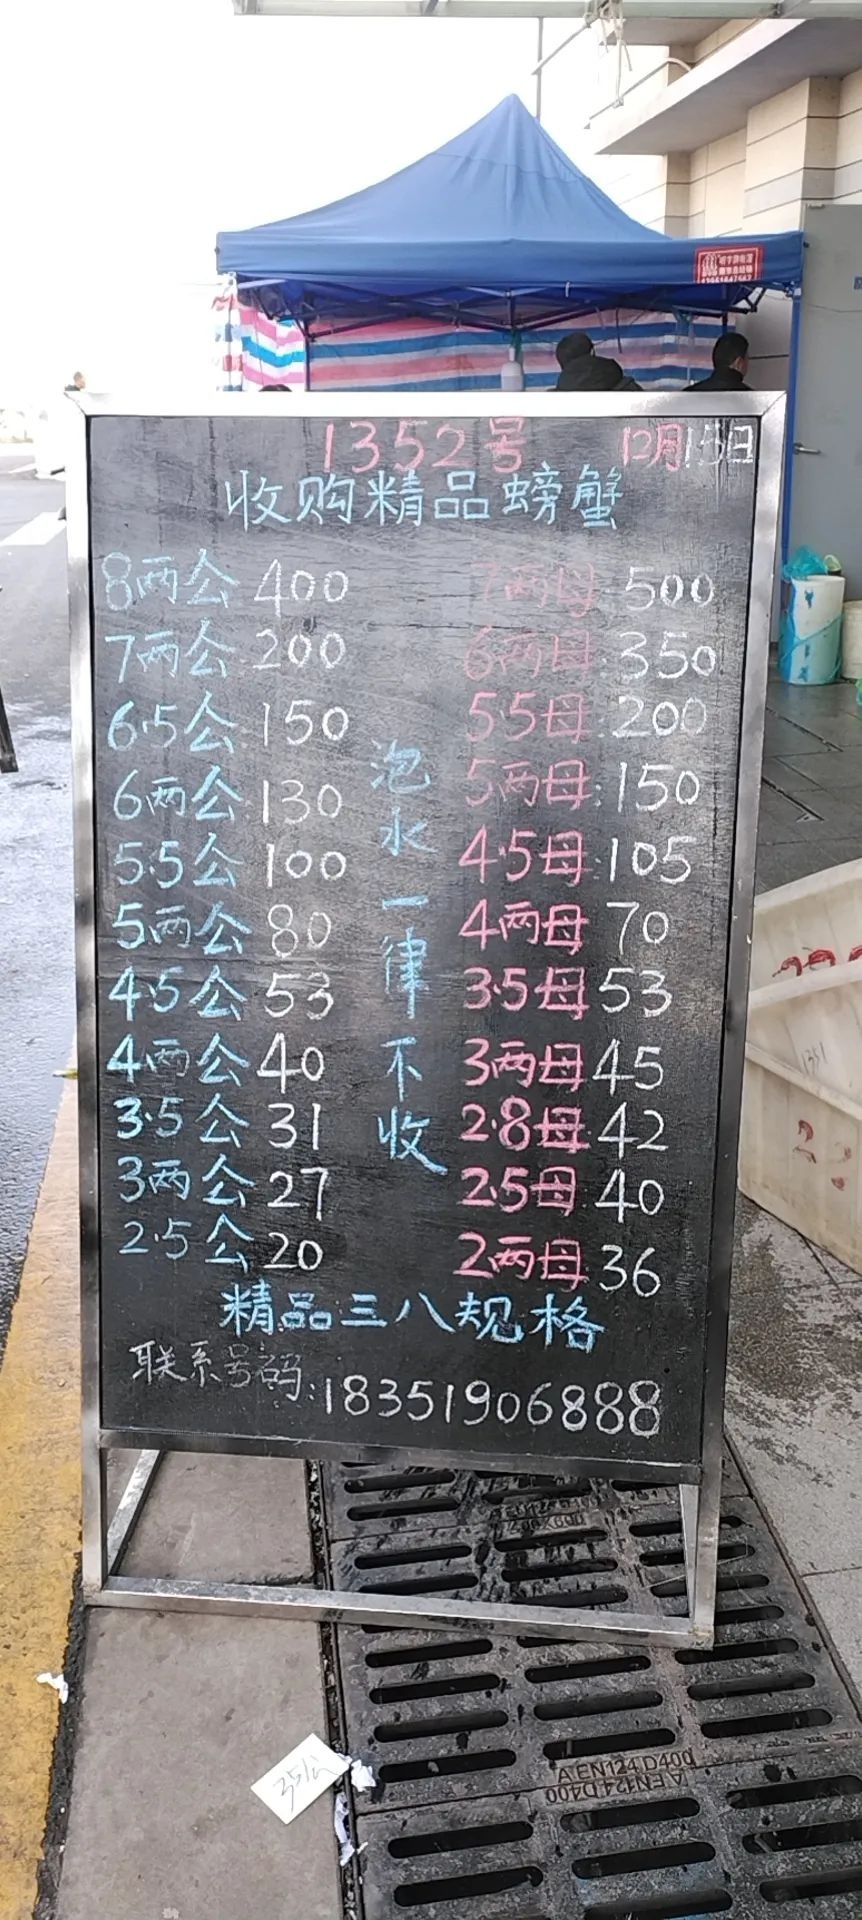 1352号 12月15日
收购精品螃蟹
8两公 400 7两母 500
7两公 200 6两母 350
6.5公 150 5.5母 200
6两公 130 5两母 150
5.5公 100 4.5母 105
5两公 80 4两母 70
4.5公 53 3.5母 53
4两公 40 3两母 45
3.5公 31 2.8母 42
3两公 27 2.5母 40
2.5公 20 2两母 36
泡水一律不收
精品三八规格
联系号码:18351906888
1351
35公
A EN124 D400
A EN124 D400